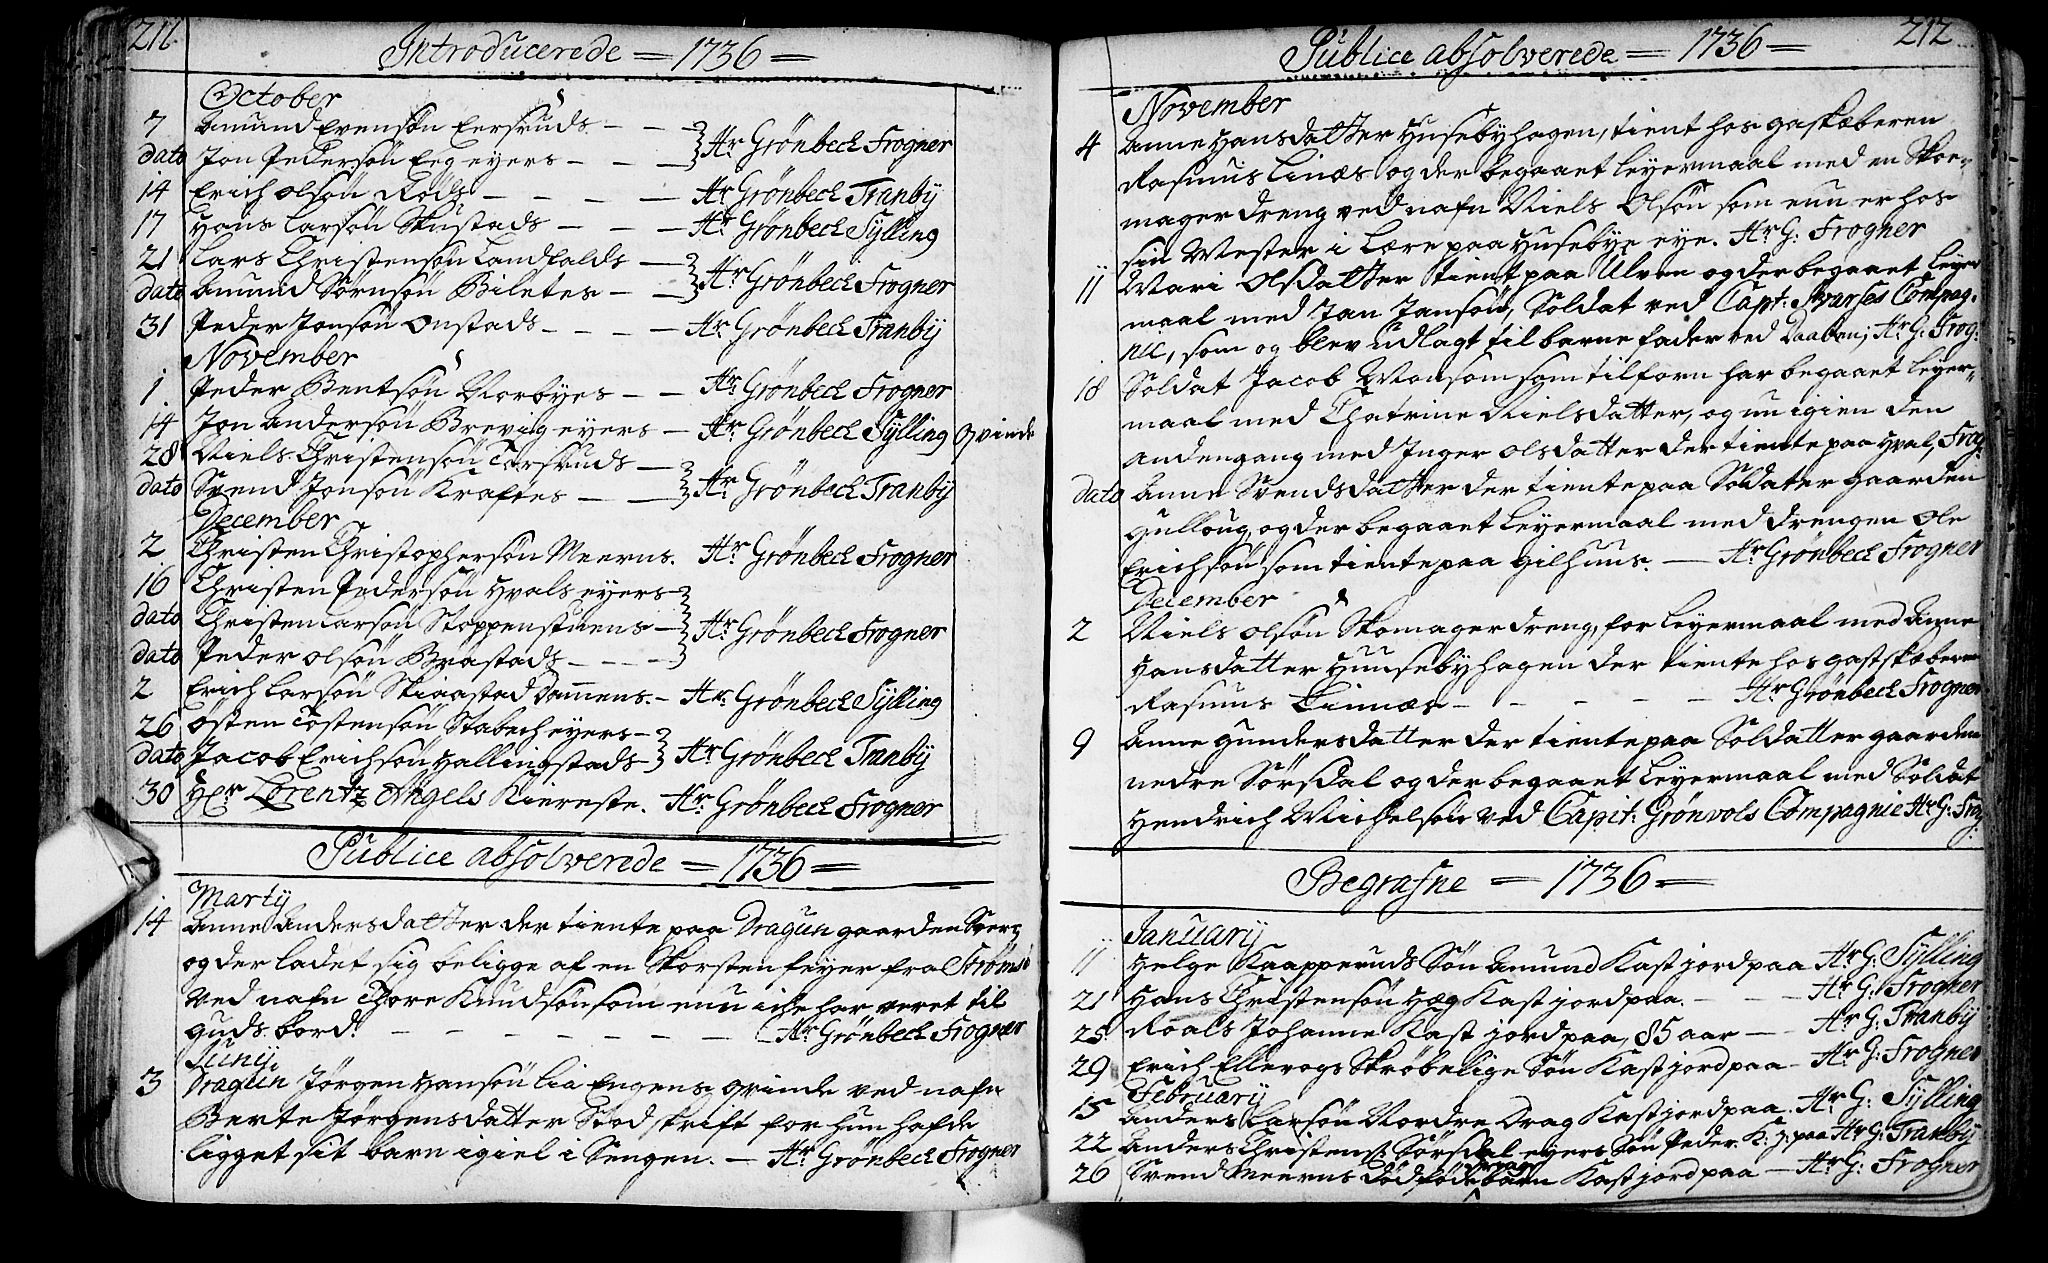 211.
Introducerede = 1736 =
October
7 Amund Evensøn Eersruds — — Hr Grønbech Frogner
dato Jon Pedersøn Eeg eyers — — —
14 Erich Olsøn — — — — Hr Grønbech Tranby
17 Hans Larsøn Skustads — — — Hr Grønbech Sylling
21 Lars Christensøn Landfalds — Hr Grønbech Frogner
dato Amund Sørnsøn Biletes — —
31 Peder Jonsøn Onstads — — — — Hr Grønbech Tranby
November
1 Peder Bentsøn Norbyes — — Hr Grønbech Frogner
14 Jon Andersøn Brevig eyers — Hr Grønbech Sylling Qvinde
28 Niels Christensøn Torsruds — Hr Grønbech Tranby
dato Svend Jonsøn Kraftes — —
December
2 Christen Christophersøn Meerns. Hr Grønbech Frogner
16 Christen Pedersøn Hvals eyers — Hr Grønbech Frogner
dato Christen Larsøn Stoppenstuens —
dato Peder Olsøn Brastads — — — —
2 Erich Larsøn Skiaastad Damens. — Hr Grønbech Sylling
26 Østen Tostensøn Stabech eyers — Hr Grønbech Tranby
dato Jacob Erichsøn Hallingstads —
30 Hr Lorentz Angels Kiereste. Hr Grønbech Frogner
Publice absolverede = 1736 =
Martij
14 Anne Andersdatter der tiente paa Dragun gaarden
og der ladet sig beligge af en Skorsten feyer fra Strømsø
ved nafn Thore Knudsøn som enu icke har veret til
Guds bord. — — — — — — — Hr Grønbech Frogner
Junij
3 Dragun Jørgen Hansøn Lia Engens qvinde ved nafn
Berte Jørgensdatter Stod skrift for hun hafde
ligget sit barn igiel i Sengen. — Hr Grønbech Frogner
212
Publice absolverede = 1736 =
November
4 Anne Hansdatter Husebyhagen, tient hos gaskæberen
Rasmus Linæs og der begaaet Leyermaal med en Skoe-
mager dreng ved nafn Niels Olsøn som enu er hos
sin Mester i Lære paa Husebye eye. Hr G: Frogner
11 Mari Olsdatter tient paa Ulven og der begaaet Leyer
maal med Jan Jansøn, Soldat ved Capt: Compag-
nie, som og blev udlagt til barne fader ved Daaben; Hr G: Frog:
18 Soldat Jacob Monsøm som tilforn har begaaet Leyer-
maal med Chatrine Nielsdatter, og nu igien den
anden gang med Inger Olsdatter der tiente paa Hval, Frog:
dato Anne Svendsdatter der tiente paa Soldater gaarden
Gulloug, og der begaaet Leyermaal med drengen Ole
Erichsøn som tiente paa Gilhuus. — Hr Grønbech Frogner
December
2 Niels Olsøn Skomager dreng, for Leyermaal med Anne
Hansdatter Huusebyhagen der tiente hos gastskæberen
Rasmus Linnæs — — — — — Hr Grønbech Frogner
9 Anne Gundersdatter der tiente paa Soldatter gaarden
nedre Sørsdal og der begaaet Leyermaal med Soldat
Hendrich Michelsøn ved Capit: Grønvols Compagnie Hr G: Frog.
Begrafne = 1736 =
Januarij
11 Helge Kaapperuds Søn Amund Kast jord paa Hr G: Sylling
21 Hans Christensøn Hæg Kast jord paa. — — — Hr G: Frogner
25 Roals Johanne Kast jord paa, 85 aar — — Hr G: Tranby
29 Erich Ellerogs Skrøbelige Søn Kast jord paa — Hr G: Frogner
Februarij
15 Anders Larsøn Nordre Drag Kast jord paa. Hr G: Sylling
22 Anders Christens: Sørsdal eyers Søn Peder K: j: paa Hr G: Tranby
26 Svend Meerns dødfødebarn Kast jord paa — Hr G: Frogner